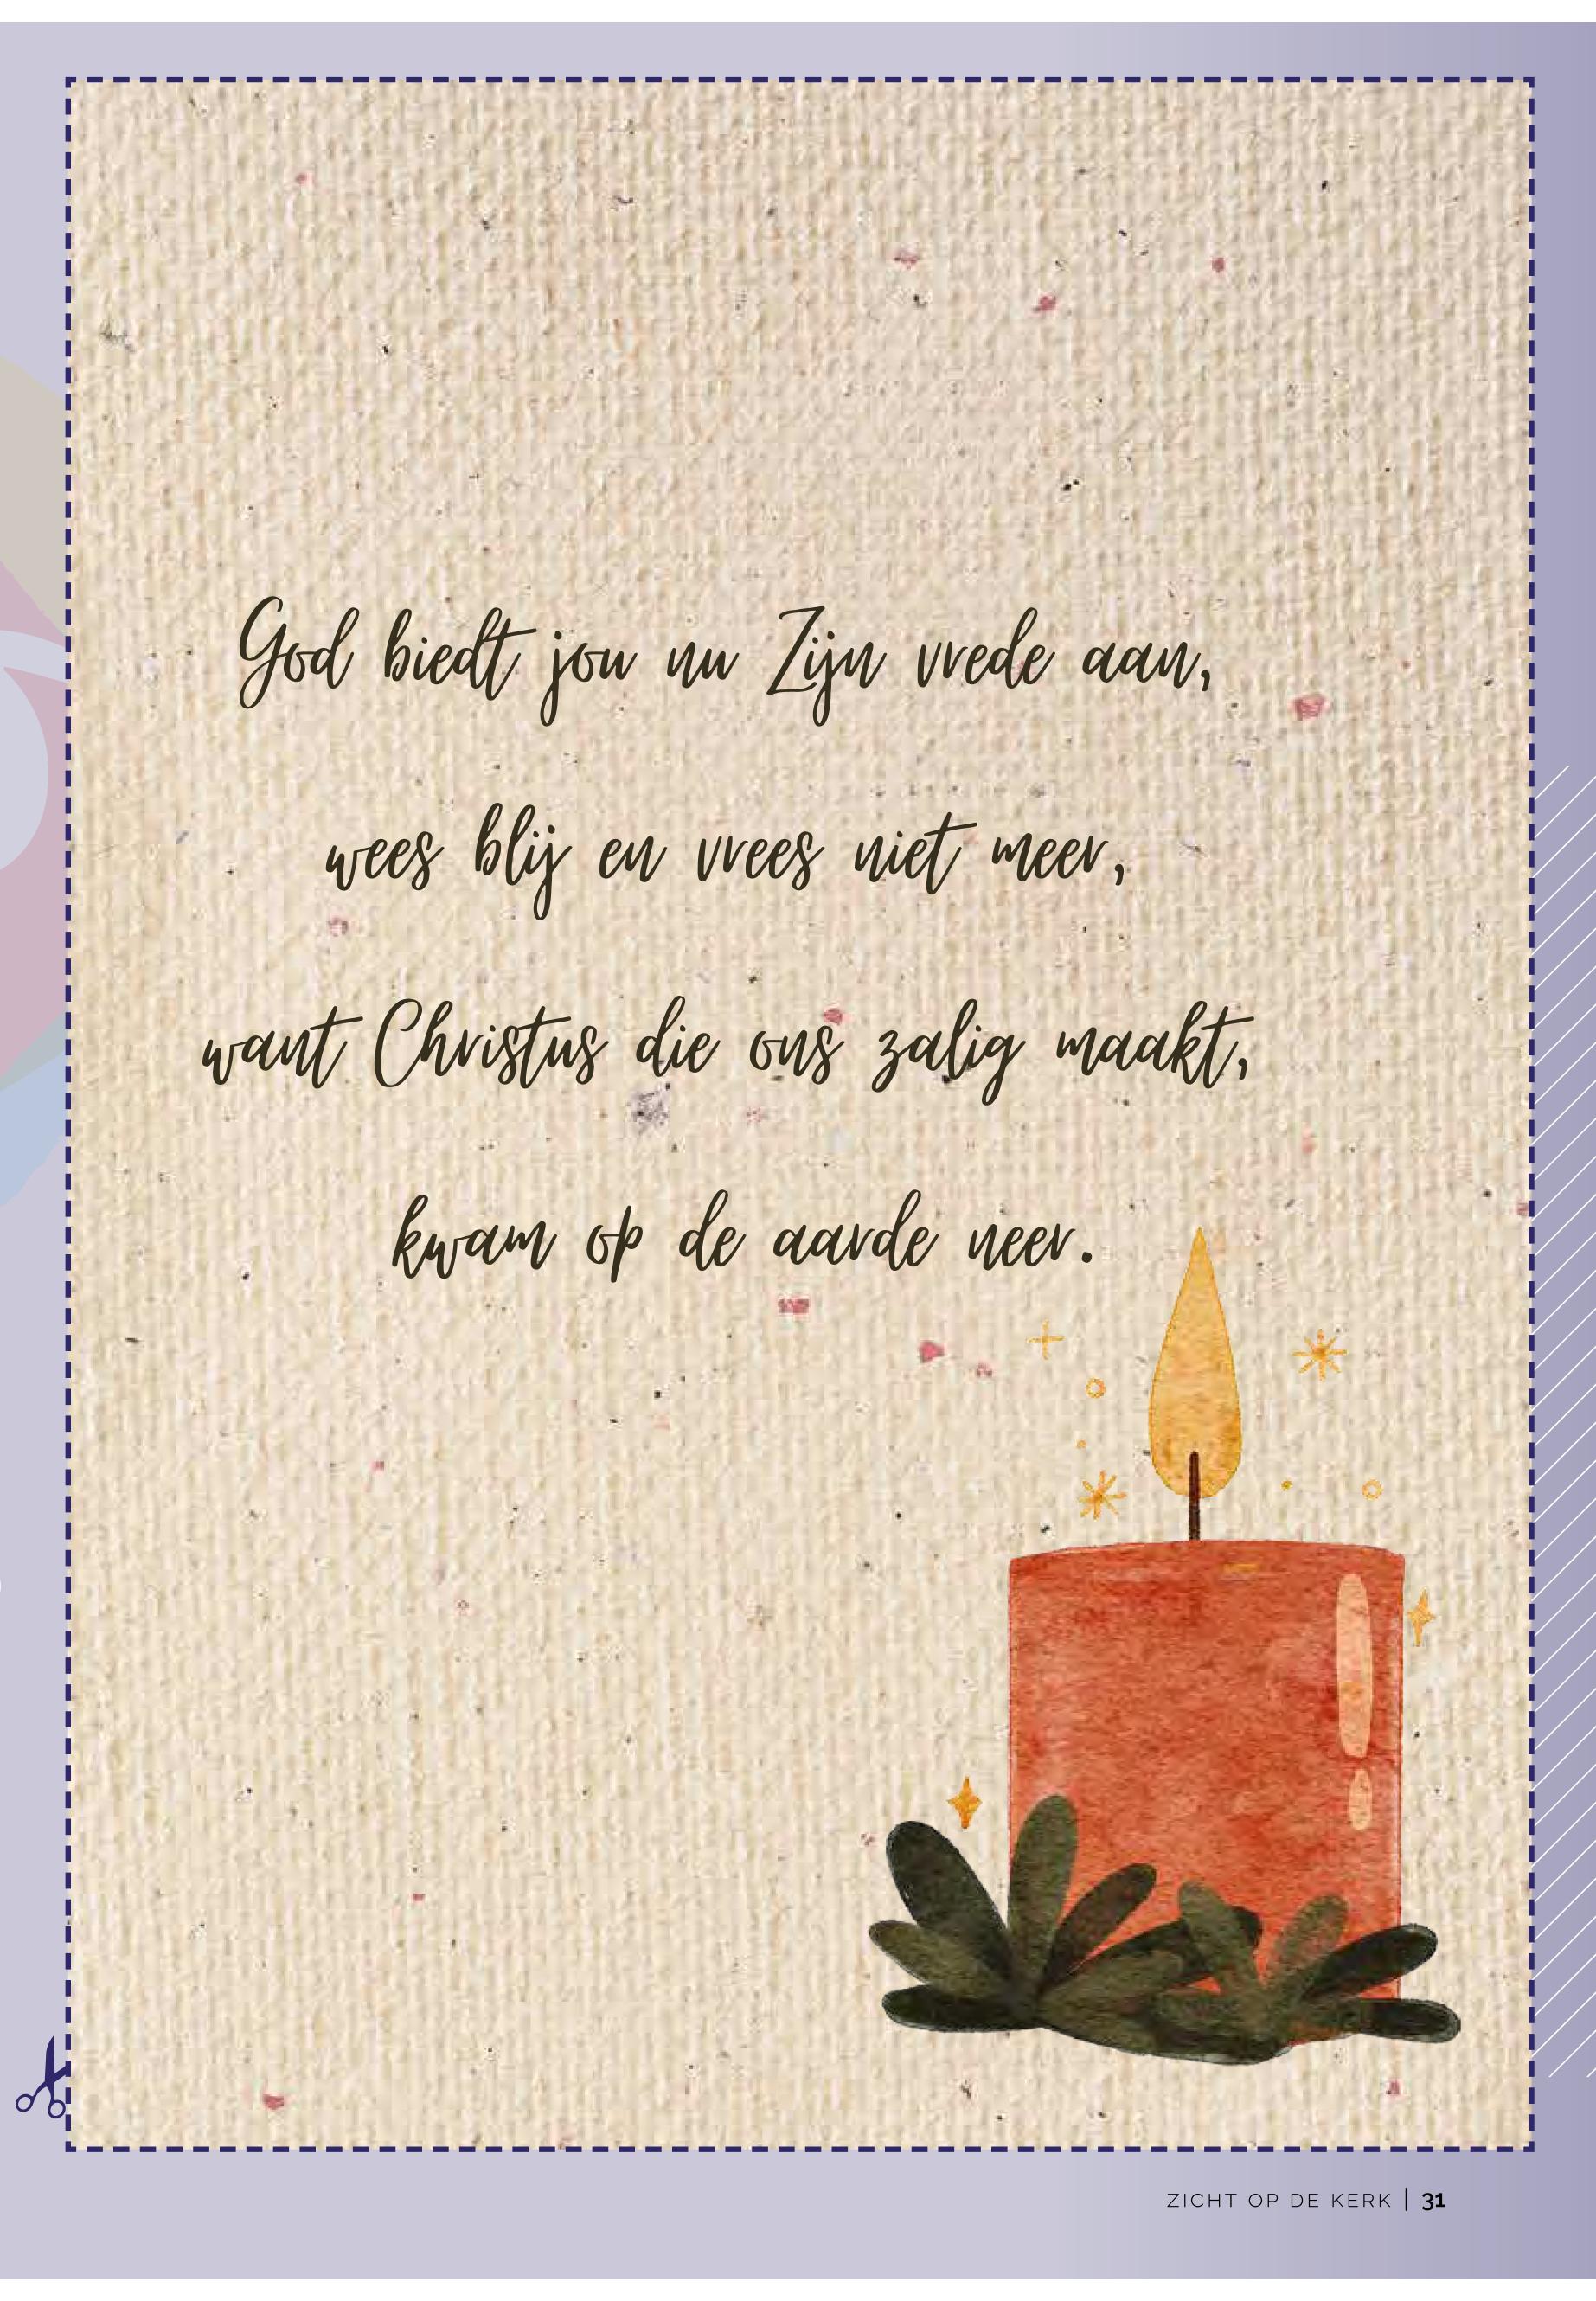 God biedt jou nu Zijn vrede aan,
wees blij en vrees niet meer,
want Christus die ons zalig maakt,
kwam op de aarde neer.
ZICHT OP DE KERK | 31